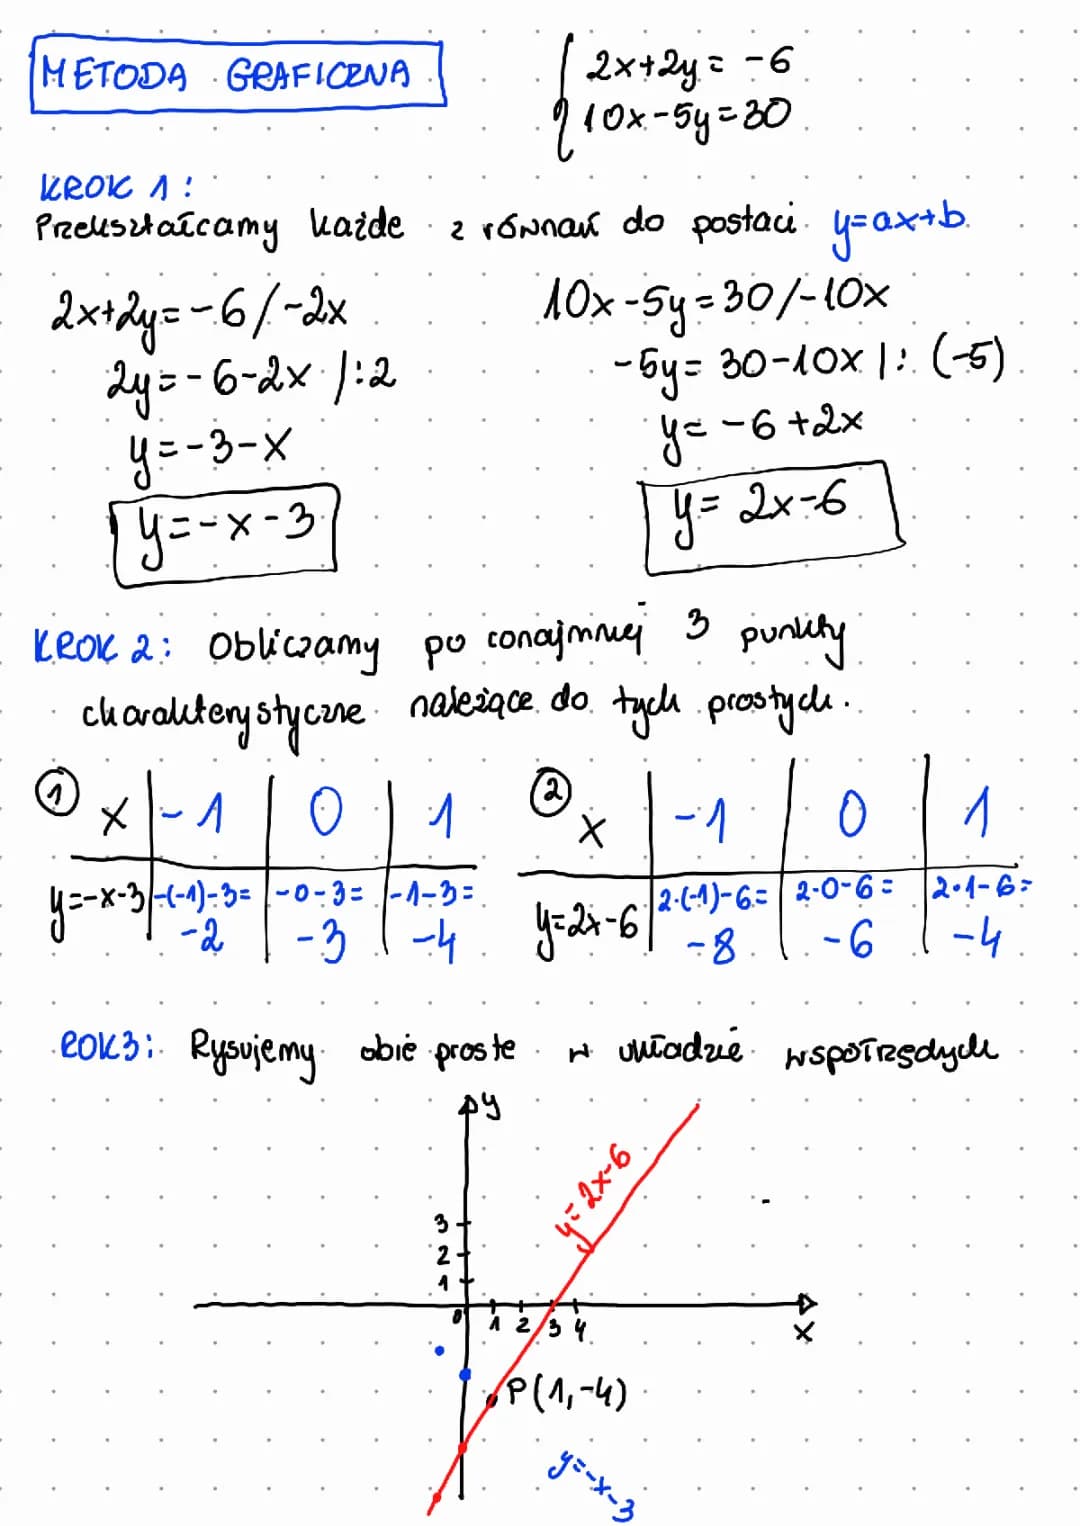 METODA GRAFICZNA
2x+2y = -6
10x-5y=30
KROK 1:
Przekształcamy każde z równań do postaci y=ax+b.
2x+2y=-6/-2x
2y=-6-2x /:2
y=-3-x
y=-x-3
10x-5y=30/-10x
-5y= 30-10x |: (-5)
y= -6+2x
y= 2x-6
KROK 2: Obliczamy po conajmniej 3 punkty
charakterystyczne należące do tych prostych.
1 x -1 0 1
y=-x-3 -(-1)-3= -0-3= -1-3=
-2 -3 -4
2 x -1 0 1
y=2x-6 2·(-1)-6= 2·0-6= 2·1-6=
-8 -6 -4
ROK3: Rysujemy obie proste w układzie współrzędych
y
y=2x-6
3
2
1
0 1 2 3 4
x
P(1,-4)
y=-x-3